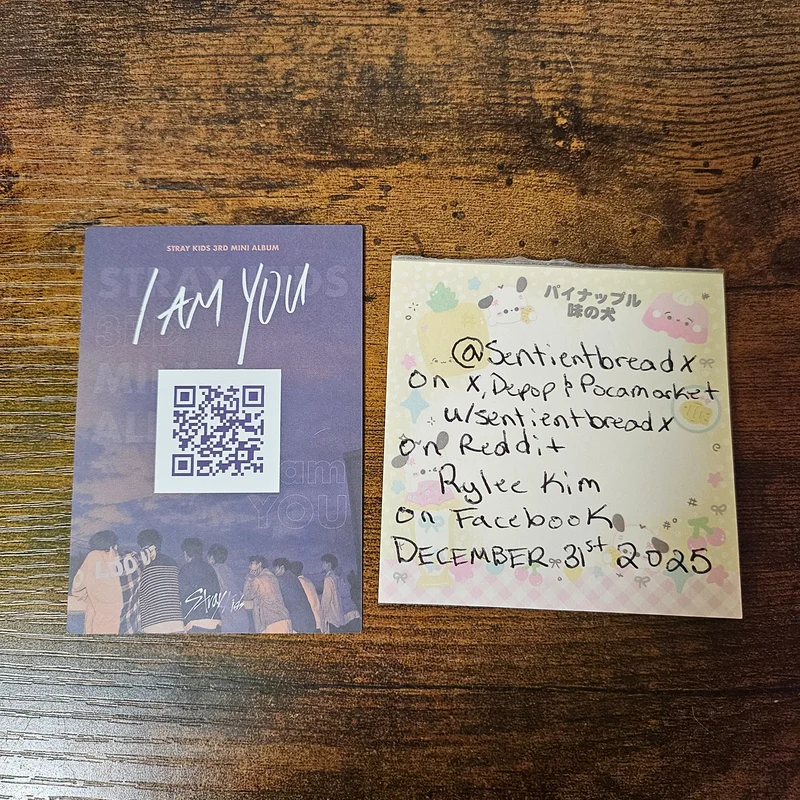 STRAY KIDS 3RD MINI ALBUM
STRAY KIDS
I AM YOU
3RD
MINI
ALBUM
I am
YOU
Stray Kids
パイナップル
味の犬
@Sentientbreadx
on X, Depop & Pocamarket
u/sentientbreadx
on Reddit
Rylee Kim
on Facebook
DECEMBER 31st 2025